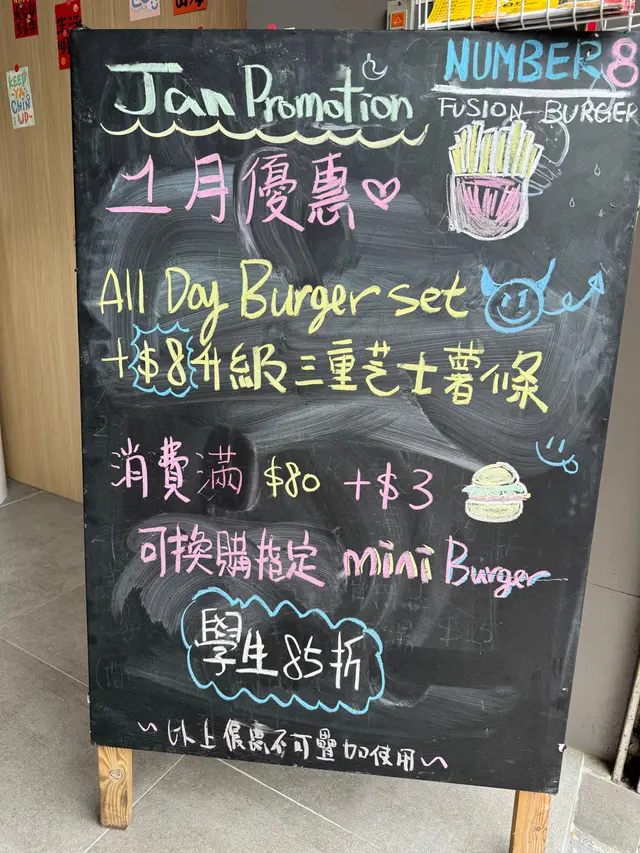 KEEP
YA
CHIN
UP
Jan Promotion
NUMBER 8
FUSION BURGER
1月優惠
All Day Burger set
+$8升級三重芝士薯條
消費滿 $80 +$3
可換購指定 mini Burger
學生85折
~以上優惠不可疊加使用~